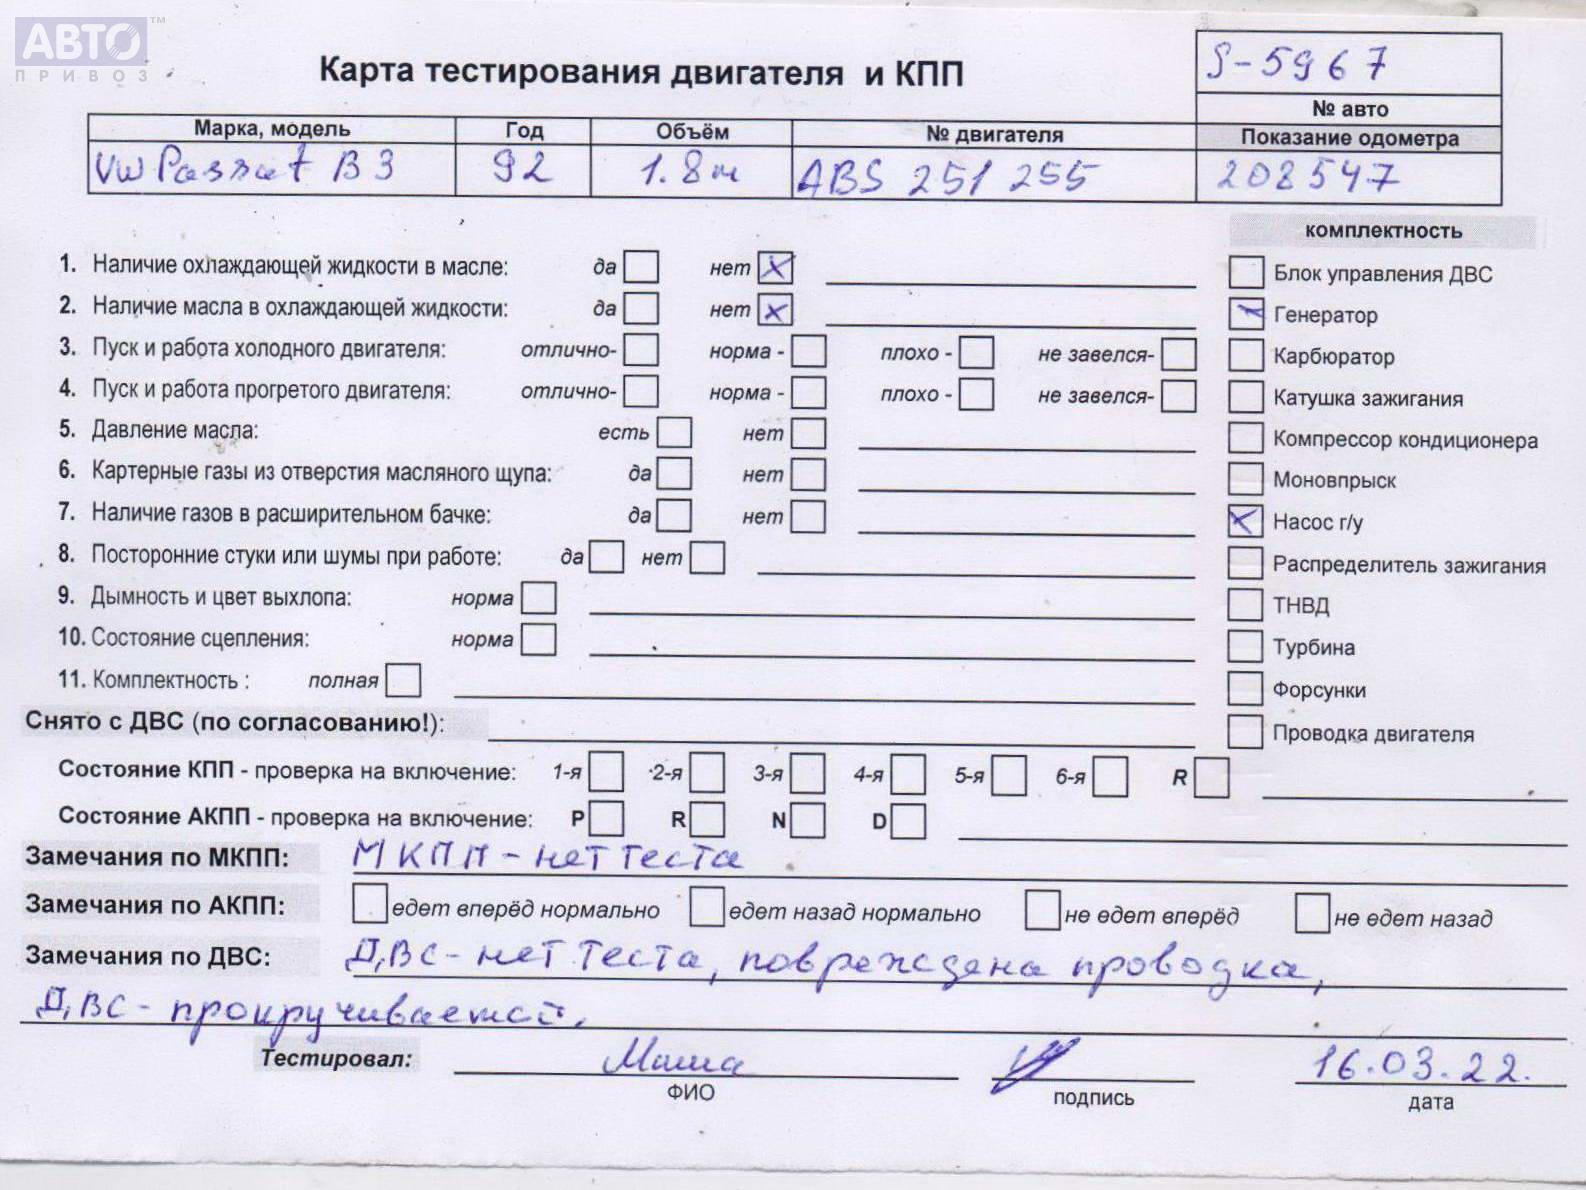 АВТО ™
ПРИВОЗ
Карта тестирования двигателя и КПП
S-5967
№ авто
Марка, модель Год Объём № двигателя Показание одометра
VW Passat B3 92 1.8м ABS 251 255 208547
комплектность
1. Наличие охлаждающей жидкости в масле: да нет X
Блок управления ДВС
2. Наличие масла в охлаждающей жидкости: да нет X
Генератор
3. Пуск и работа холодного двигателя: отлично- норма - плохо - не завелся-
Карбюратор
4. Пуск и работа прогретого двигателя: отлично- норма - плохо - не завелся-
Катушка зажигания
5. Давление масла: есть нет
Компрессор кондиционера
6. Картерные газы из отверстия масляного щупа: да нет
Моновпрыск
7. Наличие газов в расширительном бачке: да нет
X Насос г/у
8. Посторонние стуки или шумы при работе: да нет
Распределитель зажигания
9. Дымность и цвет выхлопа: норма
ТНВД
10. Состояние сцепления: норма
Турбина
11. Комплектность : полная
Форсунки
Снято с ДВС (по согласованию!):
Проводка двигателя
Состояние КПП - проверка на включение: 1-я 2-я 3-я 4-я 5-я 6-я R
Состояние АКПП - проверка на включение: P R N D
Замечания по МКПП: МКПП - нет теста
Замечания по АКПП: едет вперёд нормально едет назад нормально не едет вперёд не едет назад
Замечания по ДВС: ДВС - нет теста, повреждена проводка,
ДВС - прокручивается.
Тестировал: Маша 16.03.22.
ФИО подпись дата